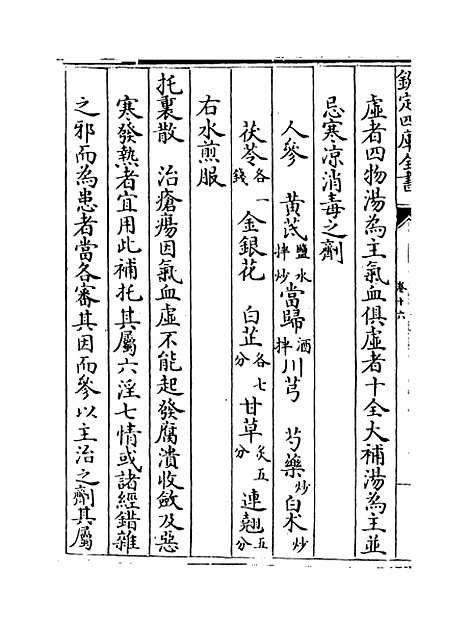 欽定四庫全書
卷十六
虛者四物湯為主氣血俱虛者十全大補湯為主並
忌寒凉消毒之劑
人參 黃芪鹽水拌炒 當歸酒拌 川芎 芍藥炒 白术炒
茯苓各一錢 金銀花 白芷各七分 甘草炙五分 連翹五分
右水煎服
托裏散 治瘡瘍因氣血虛不能起發腐潰收斂及惡
寒發熱者宜用此補托其屬六淫七情或諸經錯雜
之邪而為患者當各審其因而參以主治之劑其屬